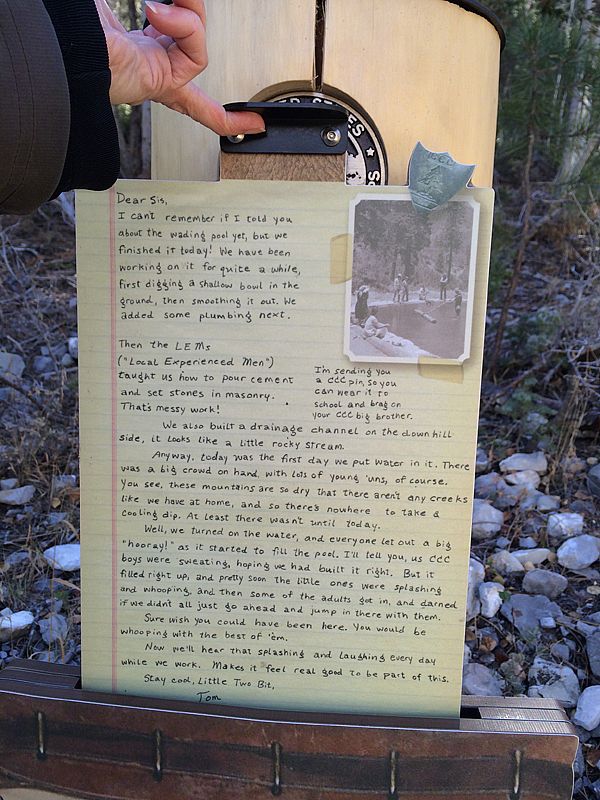 ED STATES
CCC
Dear Sis,
I can't remember if I told you
about the wading pool yet, but we
finished it today! We have been
working on it for quite a while,
first digging a shallow bowl in the
ground, then smoothing it out. We
added some plumbing next.
Then the LEMs
("Local Experienced Men")
taught us how to pour cement
and set stones in masonry.
That's messy work!
I'm sending you
a CCC pin, so you
can wear it to
school and brag on
your CCC big brother.
We also built a drainage channel on the down hill
side, it looks like a little rocky stream.
Anyway, today was the first day we put water in it. There
was a big crowd on hand, with lots of young 'uns, of course.
You see, these mountains are so dry that there aren't any creeks
like we have at home, and so there's nowhere to take a
cooling dip. At least there wasn't until today.
Well, we turned on the water, and everyone let out a big
"hooray!" as it started to fill the pool. I'll tell you, us CCC
boys were sweating, hoping we had built it right. But it
filled right up, and pretty soon the little ones were splashing
and whooping, and then some of the adults got in, and darned
if we didn't all just go ahead and jump in there with them.
Sure wish you could have been here. You would be
whooping with the best of 'em.
Now we'll hear that splashing and laughing every day
while we work. Makes it feel real good to be part of this.
Stay cool, Little Two Bit,
Tom